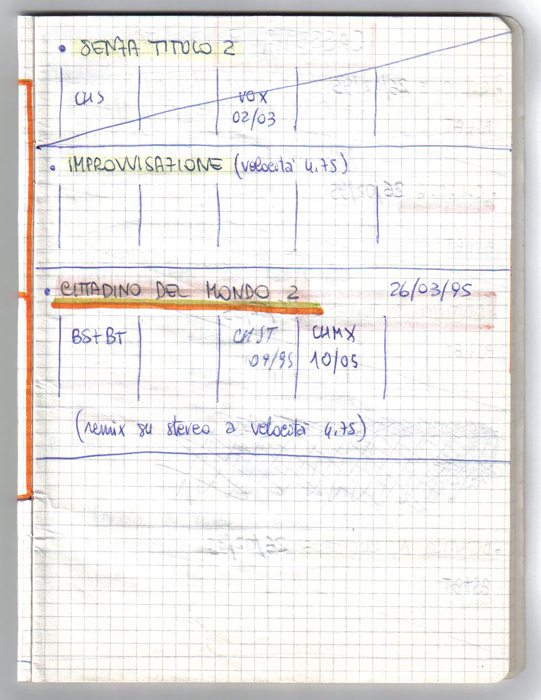 • SENZA TITOLO 2
CHS VOX
02/03
• IMPROVVISAZIONE (velocità 4.75)
• CITTADINO DEL MONDO 2 26/03/95
BS+BT CHST CHMX
04/95 10/05
(remix su stereo a velocità 4.75)